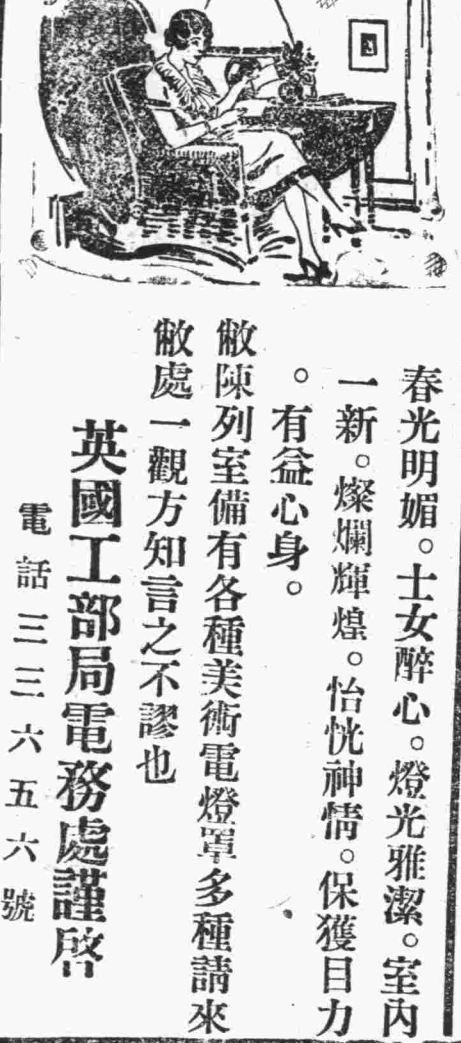 春光明媚。士女醉心。燈光雅潔。室內
一新。燦爛輝煌。怡恍神情。保獲目力
。有益心身。
敝陳列室備有各種美術電燈罩多種請來
敝處一觀方知言之不謬也
英國工部局電務處謹啓
電話三三六五六號